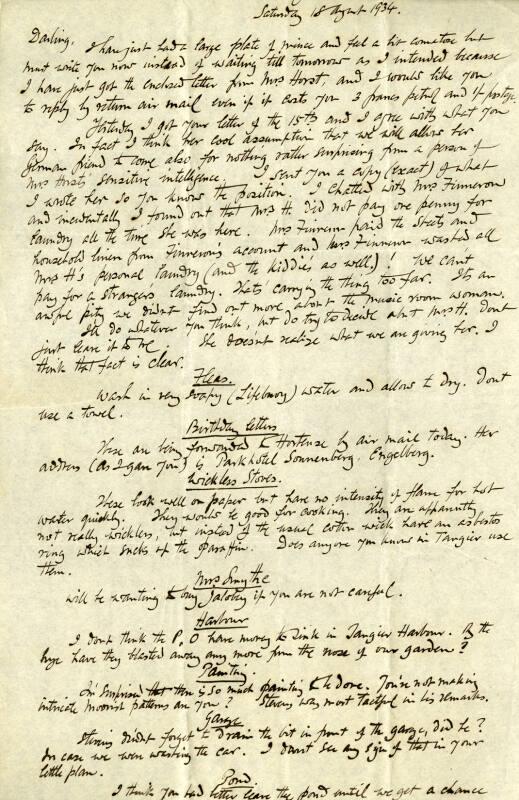 Saturday 18 August 1934.
Darling, I have just had a large plate of and feel a bit comatose but
must write you now instead of waiting till tomorrow as I intended because
I have just got the enclosed letter from Mrs Horst, and I would like you
to reply by return air mail even if it costs you 3 francs petrol and 4 postage.
Yesterday I got your letter of the 15th and I agree with what you
say. In fact I think her cool assumption that we will allow her
German friend to come also for nothing rather surprising from a person of
Mrs Horst's sensitive intelligence. I sent you a copy (exact) of what
I wrote her so you know the position. I chatted with Mrs Finneron
and incidentally I found out that Mrs H. did not pay one penny for
laundry all the time she was here. Mrs Finneron paid the sheets and
household linen from Finneron's account and Mrs Finneron washed all
Mrs H's personal laundry (and the kiddie's as well)! We can't
pay for a stranger's laundry. That's carrying the thing too far. Its an
awful pity we didn't find out more about the music room woman.
I'll do whatever you think, but do try to decide abt Mrs H. Dont
just leave it to me. She doesn't realize what we are giving her. I
think that fact is clear.
Fleas.
Wash in very soapy (Lifebuoy) water and allow to dry. Dont
use a towel.
Birthday letters
These are being forwarded to Hortense by air mail today. Her
address (as I gave you) is Parkhotel Sonnenberg, Engelberg.
Wickless Stoves.
These look well on paper but have no intensity of flame for hot
water quickly. They would be good for cooking. They are apparently
not really wickless, but instead of the usual cotton wick have an asbestos
ring which sucks up the paraffin. Does anyone you know in Tangier use
them.
Mrs Smythe
will be wanting to buy Jalobey if you are not careful.
Harbour
I dont think the P. O have money to sink in Tangier Harbour. By the
bye have they blasted away any more from the nose of our garden?
Painting.
I'm surprised that there is so much painting to be done. You're not making
intricate Moorish patterns are you? Stevens was most tactful in his remarks.
Garage
Stevens didn't forget to drain the bit in front of the garage, did he?
In case we were washing the car. I don't see any sign of that in your
little plan.
Pond
I think you had better leave the pond until we get a chance